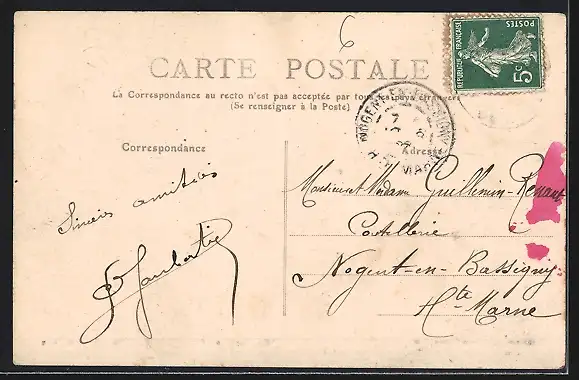 6
CARTE POSTALE
La Correspondance au recto n'est pas acceptée par tous les pays étrangers
(Se renseigner à la Poste)
REPUBLIQUE FRANÇAISE
POSTES
5c
NOGENT-EN-BASSIGNY
Hte MARNE
Correspondance
Adresse
Sincères amitiés
Monsieur et Madame Guillemin-Renaut
Coutellerie
Nogent-en-Bassigny
Hte Marne